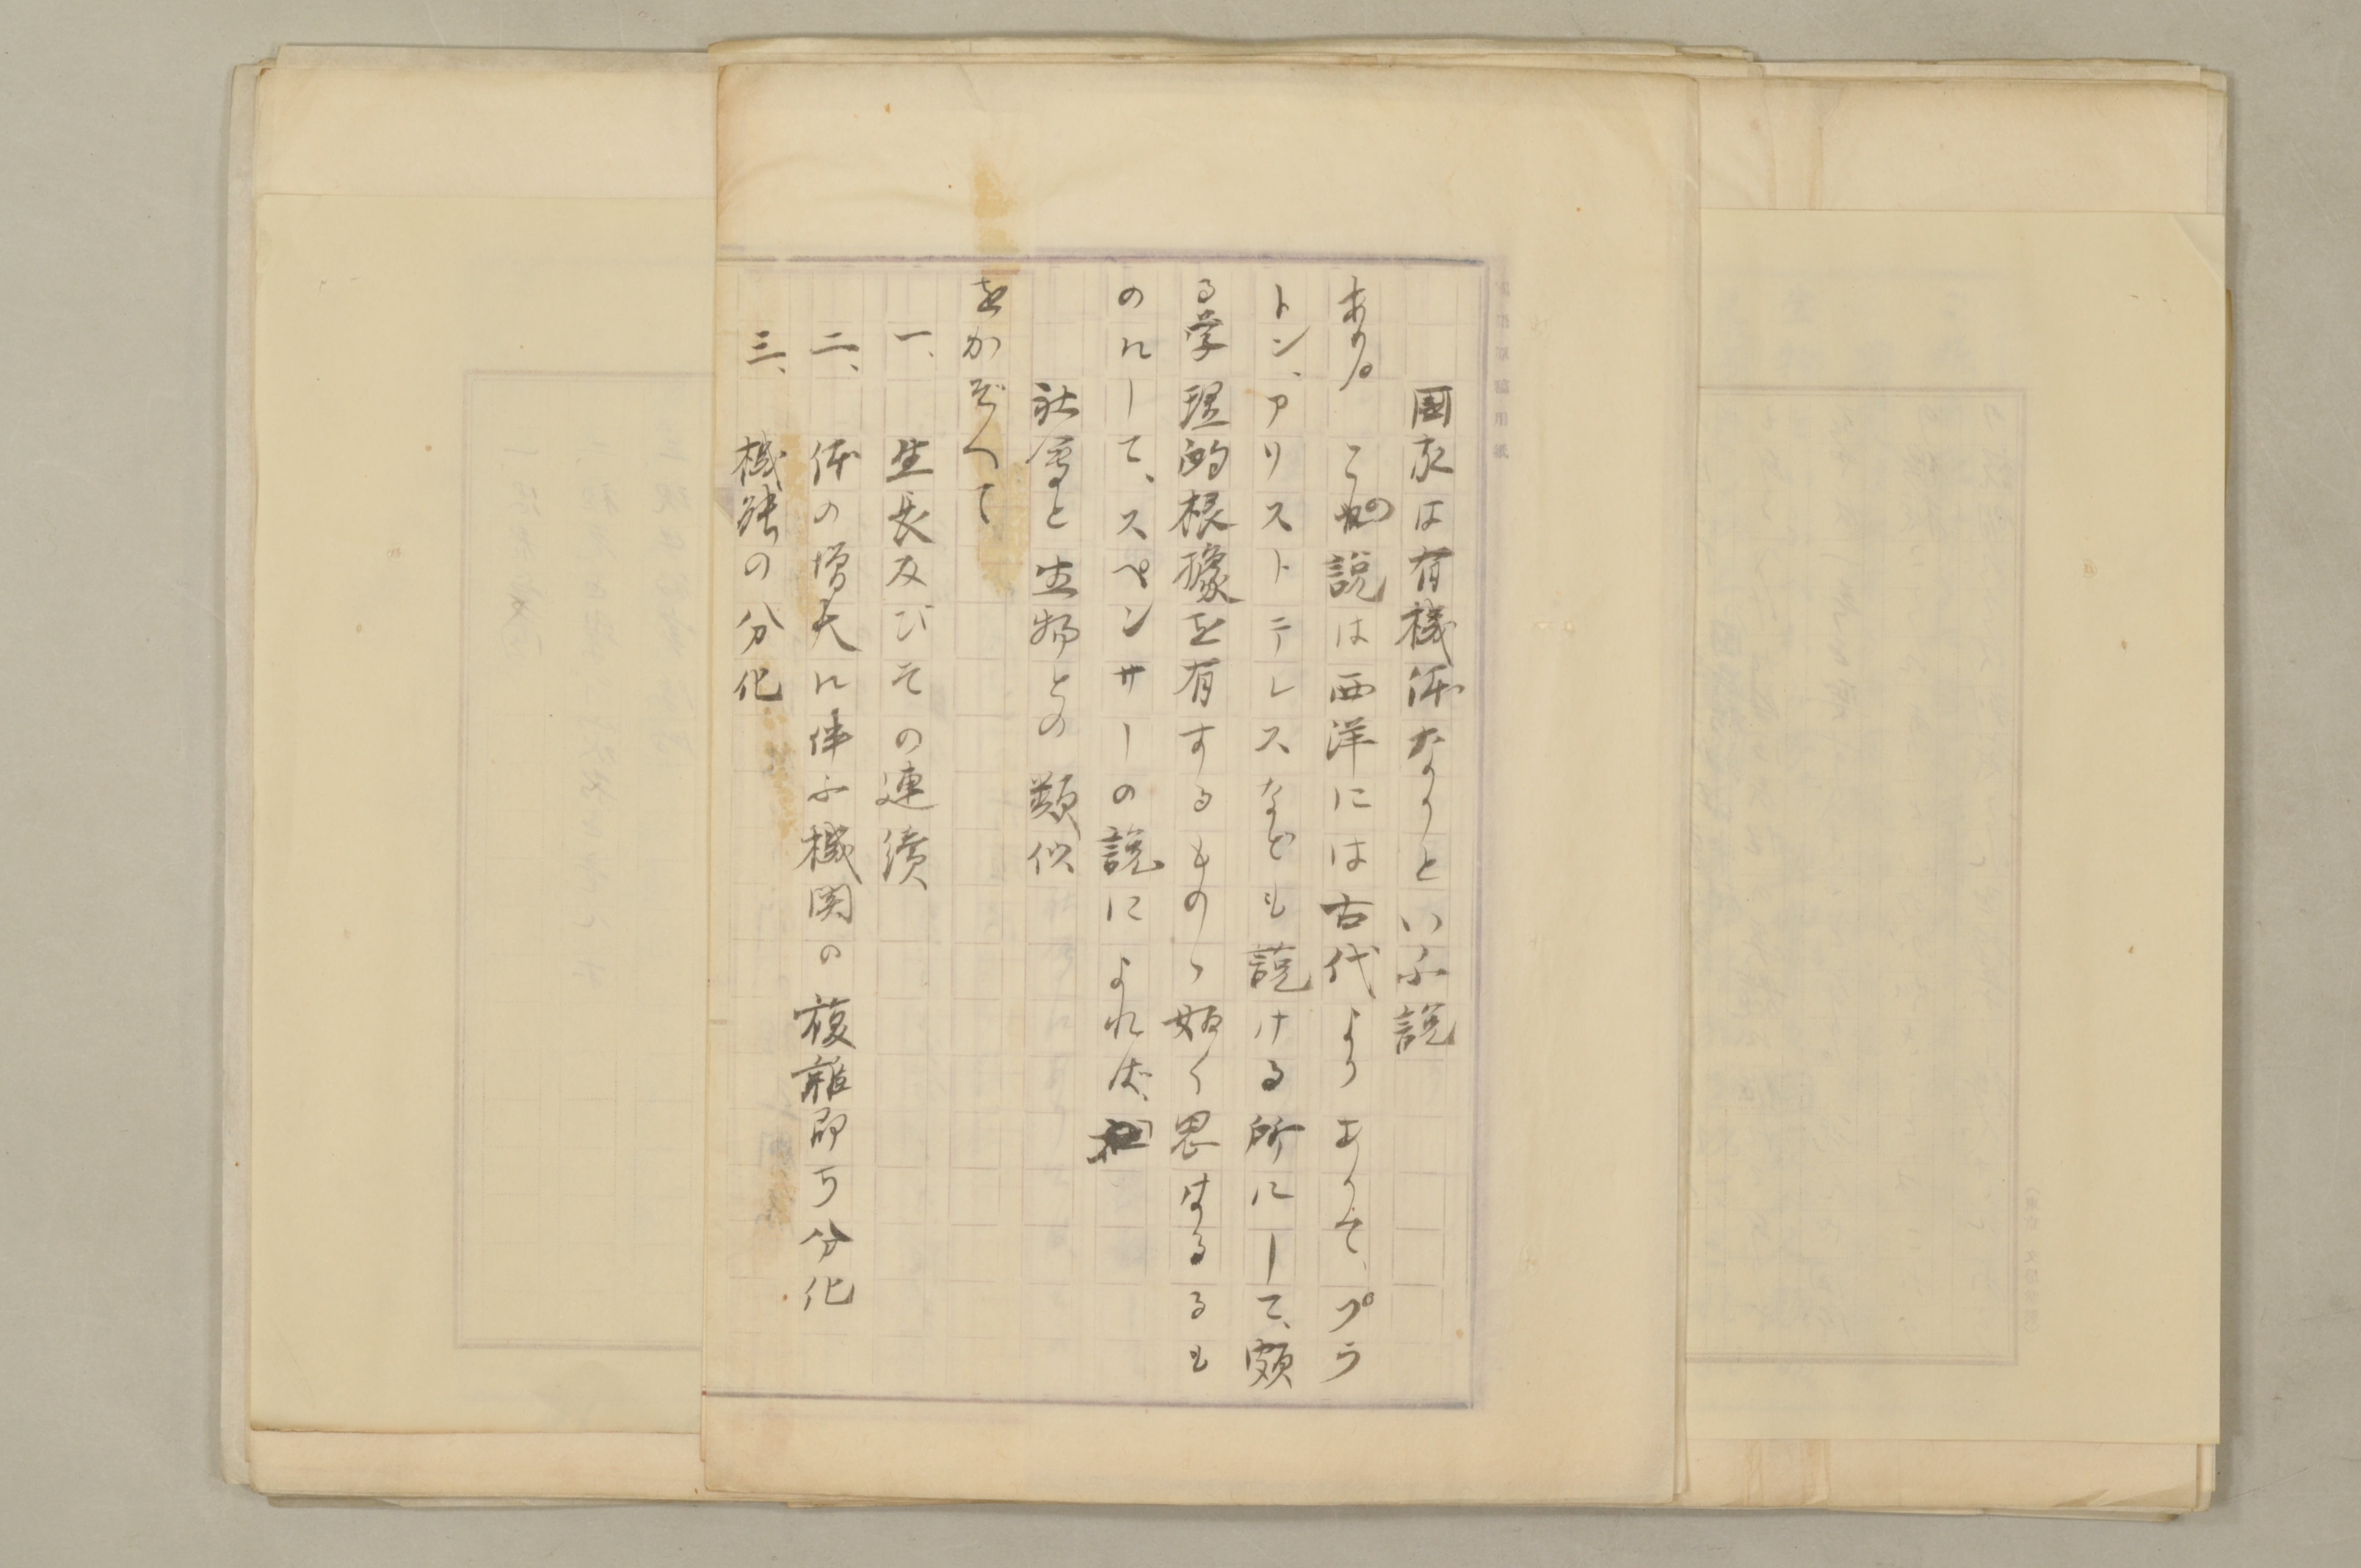 國家は有機体なりといふ説
あり。この説は西洋には古代よりありて、プラ
トン、アリストテレスなども説ける所にして、頗
る学理的根據を有するものゝ如く思はるるも
のにして、スペンサーの説によれば、
社會と生物との類似
をかぞへて
一、生長及びその連續
二、体の増大に伴ふ機関の複雑即ち分化
三、機能の分化